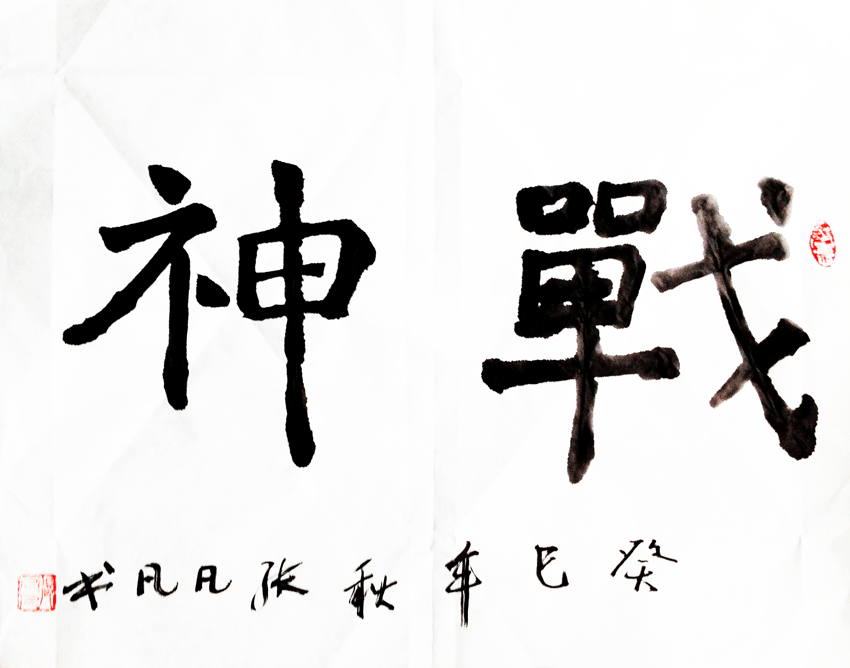 戰神
癸巳年秋張凡凡书